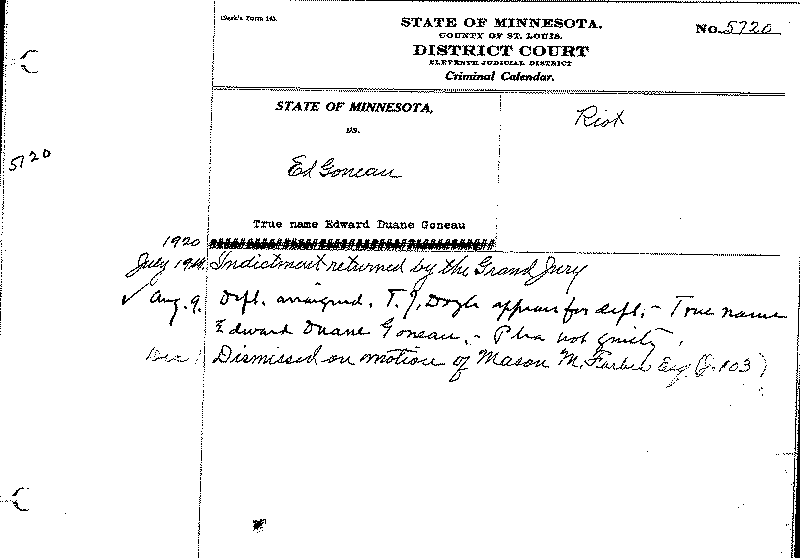 Clerk's Form 143.
STATE OF MINNESOTA,
COUNTY OF ST. LOUIS.
DISTRICT COURT
ELEVENTH JUDICIAL DISTRICT
Criminal Calendar.
No. 5720
STATE OF MINNESOTA,
vs.
Riot
5720
Ed Goneau
True name Edward Duane Goneau
1920
July Indictment returned by the Grand Jury
✓ Aug. 9. Deft. arraigned. T. J. Doyle appears for deft. - True name
Edward Duane Goneau. - Plea not guilty.
Dec 1 Dismissed on motion of Mason M. Forbes Esq (J. 103)